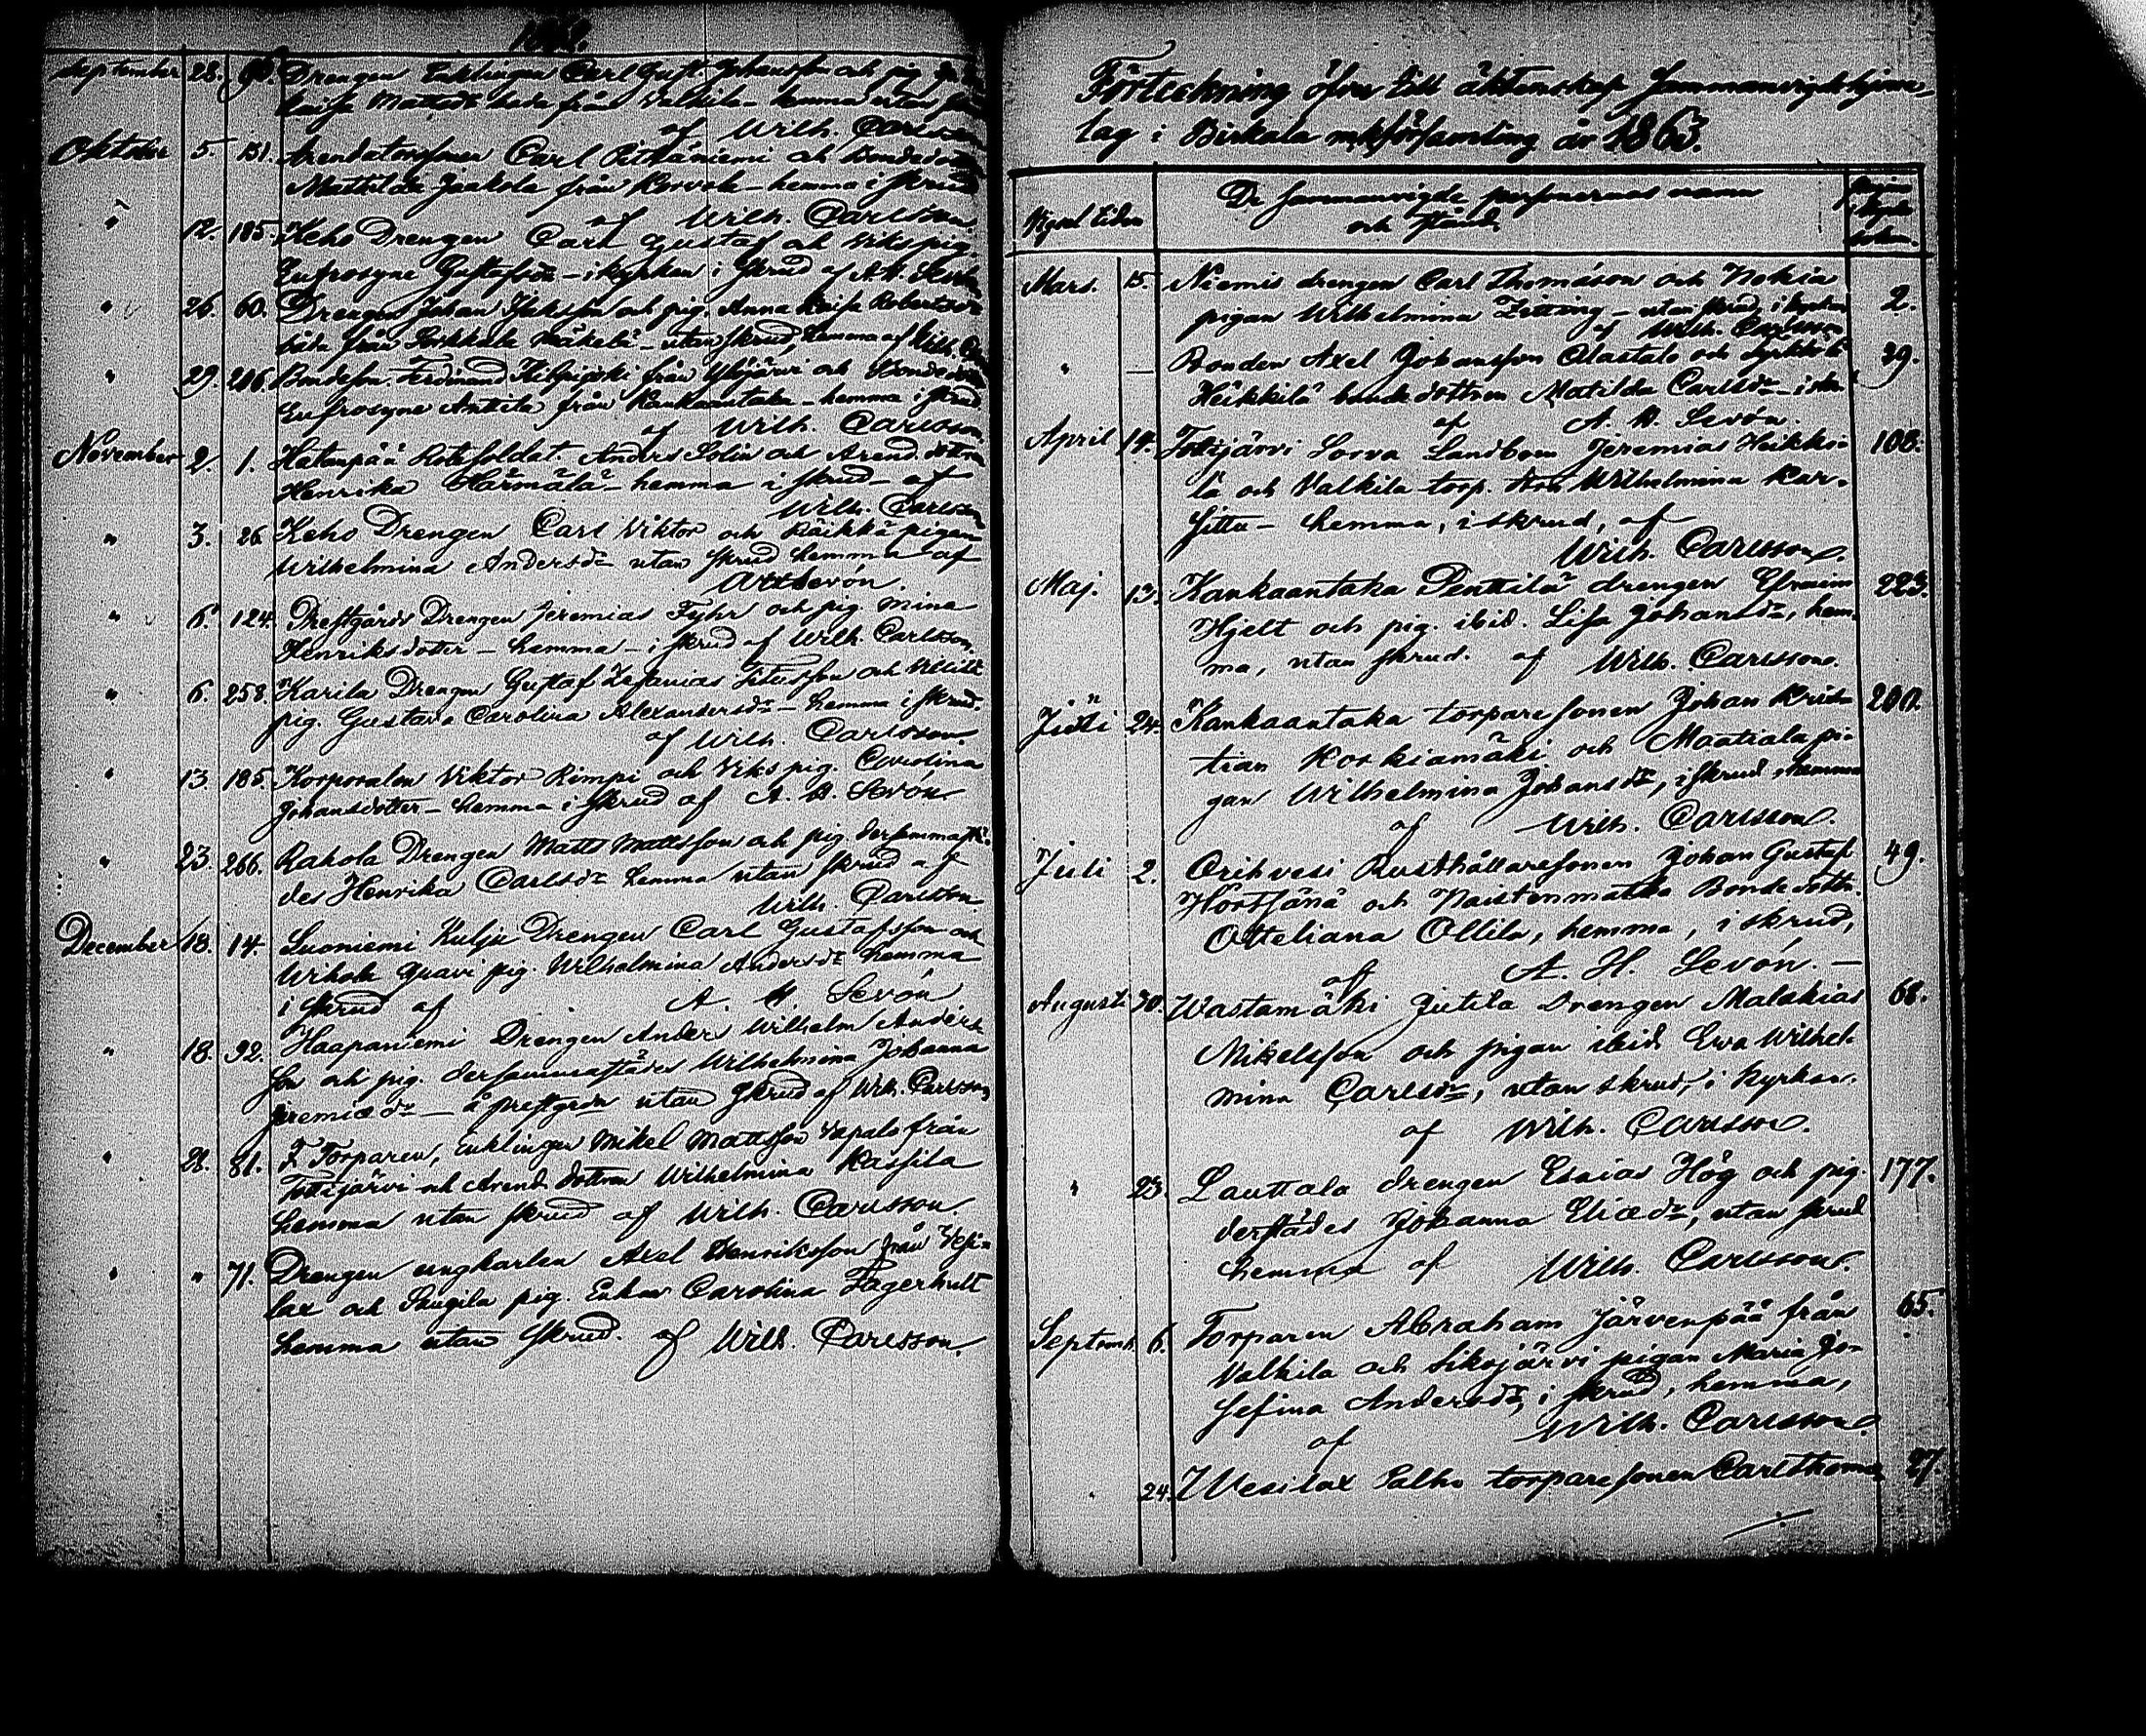 1862.
September 28. 90. Drengen Enklingen Carl Gust. Johansson och pig.
Mattsdr från Valkila - hemma utan
af Wilh. Carlsson
Oktober 5. 151. Arendatorssonen Carl Pitkäniemi och Bondedottren
Mathilda Jaakola från Korvola - hemma i skrud
af Wilh. Carlsson.
" 12. 185. Keho Drengen Carl Gustaf och Viks pig.
Eufrosyne Gustafsdr - i kyrkan i skrud af A. H. Sevón
" 26. 60. Drengen Johan och pig. Anna Kaisa Robertsdr
båda från Mäkelä - utan skrud, hemma af Wilh.
" 29. 216. Bondeson. Ferdinand från Ylöjärvi och Bondedottren
Eufrosyne Anttila från Kankaantaka - hemma i skrud.
af Wilh. Carlsson.
November 2. 1. Hatanpää Rotesoldat Anders Solin och Arend. dottren
Henrika Härmälä - hemma i skrud - af
Wilh. Carlsson
" 3. 26 Keho Drengen Carl Viktor och Räikkä pigan
Wilhelmina Andersdr utan skrud hemma af
A H Sevón.
" 6. 124 Prestgårds Drengen Jeremias Fyhr och pig. Mina
Henriksdotter - hemma - i skrud af Wilh. Carlsson.
" 6. 258. Karila Drengen Gustaf Zefanias och
pig. Gustava Carolina Alexandersdr - hemma i skrud.
af Wilh. Carlsson.
" 13. 185. Korporalen Viktor Rimpi och Viks pig. Carolina
Johansdotter - hemma i skrud af A. H. Sevón
" 23. 266. Rahola Drengen Matts Mattsson och pig. dersammastä-
des Henrika Carlsdr hemma utan skrud af
Wilh. Carlsson.
December 18. 14. Luoniemi Kulju Drengen Carl Gustafsson och
pig. Wilhelmina Andersdr hemma
i skrud af A. H. Sevón
" 18. 92. Haapaniemi Drengen Anders Wilhelm Anders-
son och pig. dersammastädes Wilhelmina Johanna
Jeremiædr - å prestgrdn utan skrud af Wilh. Carlsson,
" 28. 81. F. Torparen, Enklingen Mikel Mattsson Vapalo från
Tottijärvi och Arend. dottren Wilhelmina Kassila
hemma utan skrud af Wilh. Carlsson.
" " 71. Drengen ungkarlen Axel Henriksson från Vesi-
lax och pig. Enkan Carolina Fagerhult
hemma utan skrud. af Wilh. Carlsson.
Förteckning öfver till äktenskap sammanvigde hjone-
lag i Birkala mkförsamling år 1863.
Vigsel tiden De sammanvigde personernas namn
och stånd.
Mars. 15. Niemis drengen Carl Thomasson och Nokia 2.
pigan Wilhelmina Zitting - utan skrud, i kyrkan
af Wilh. Carlsson
" — Bonden Axel Johansson Alastalo och 39.
Heikkilä bonde dottren Matilda Carlsdr - i
af A. H. Sevón.
April 14. Tottijärvi Sorva Landbon Jeremias Heikki- 108.
lä och Valkila torp. Wilhelmina Kar-
- hemma, i skrud, af
Wilh. Carlsson.
Maj. 13. Kankaantaka Penttilä drengen Efraim 223.
Hjelt och pig. ibid. Lisa Johansdr, hem-
ma, utan skrud. af Wilh. Carlsson.
Juni 24. Kankaantaka torpare sonen Johan Kris- 200.
tian Korkiamäki och Maatiala pi-
gan Wilhelmina Johansdr, i skrud, hemma
af Wilh. Carlsson.
Juli 2. Orihvesi Rusthållaresonen Johan Gustaf 49.
Hörtsänä och Naistenmatka Bonde dottr.
Otteliana Ollila, hemma, i skrud,
af A. H. Sevón. —
Augusti 30. Wastamäki Jutila Drengen Malakias 68.
Mikelsson och pigan ibid. Eva Wilhel-
mina Carlsdr, utan skrud, i kyrkan.
af Wilh. Carlsson.
" 23. Lauttala drengen Esaias Hög och pig. 177.
derstädes Johanna Eliædr, utan skrud
hemma af Wilh. Carlsson.
Septemb. 6. Torparen Abraham Järvenpää från 65.
Valkila och Sikojärvi pigan Maria Jo-
sefina Andersdr, i skrud, hemma,
af Wilh. Carlsson.
" 24. Wesilax Palho torpare sonen Carl Thomas 27.